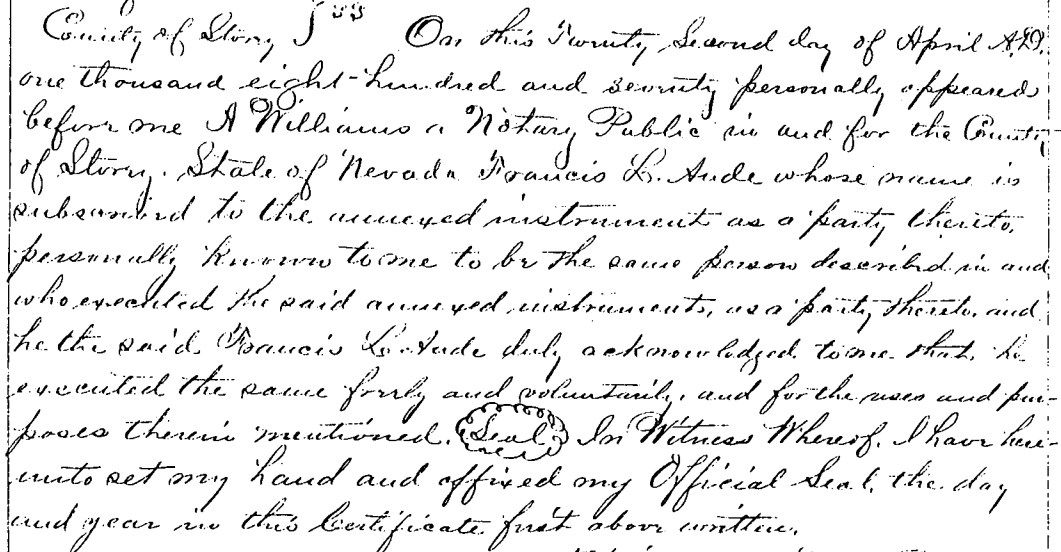 County of Story } ss On this Twenty Second day of April A.D.
one thousand eight hundred and seventy personally appeared
before me A Williams a Notary Public in and for the County
of Story. State of Nevada Francis L. Aude whose name is
subscribed to the annexed instrument as a party thereto,
personally known to me to be the same person described in and
who executed the said annexed instruments, as a party thereto, and
he the said Francis L. Aude duly acknowledged to me that he
executed the same freely and voluntarily, and for the uses and pur-
poses therein mentioned. (Seal) In Witness Whereof, I have here-
unto set my hand and affixed my Official Seal, the day
and year in this Certificate first above written.